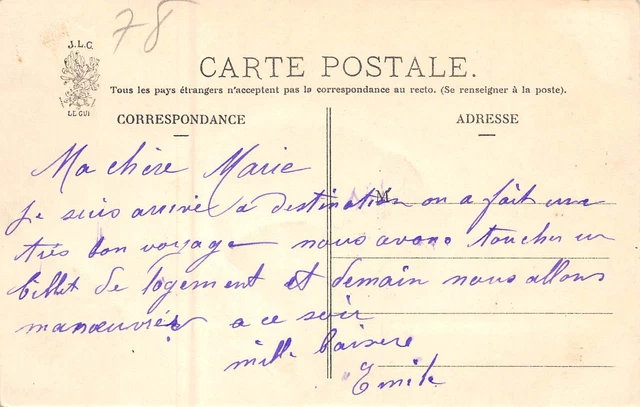 78
J.L.C.
LE GUI
CARTE POSTALE.
Tous les pays étrangers n'acceptent pas la correspondance au recto. (Se renseigner à la poste).
CORRESPONDANCE
ADRESSE
M
Ma chère Marie
Je suis arrivé a destination on a fait un
très bon voyage nous avons toucher un
billet de logement et demain nous allons
manœuvrér a ce soir
mille baisers
Emile